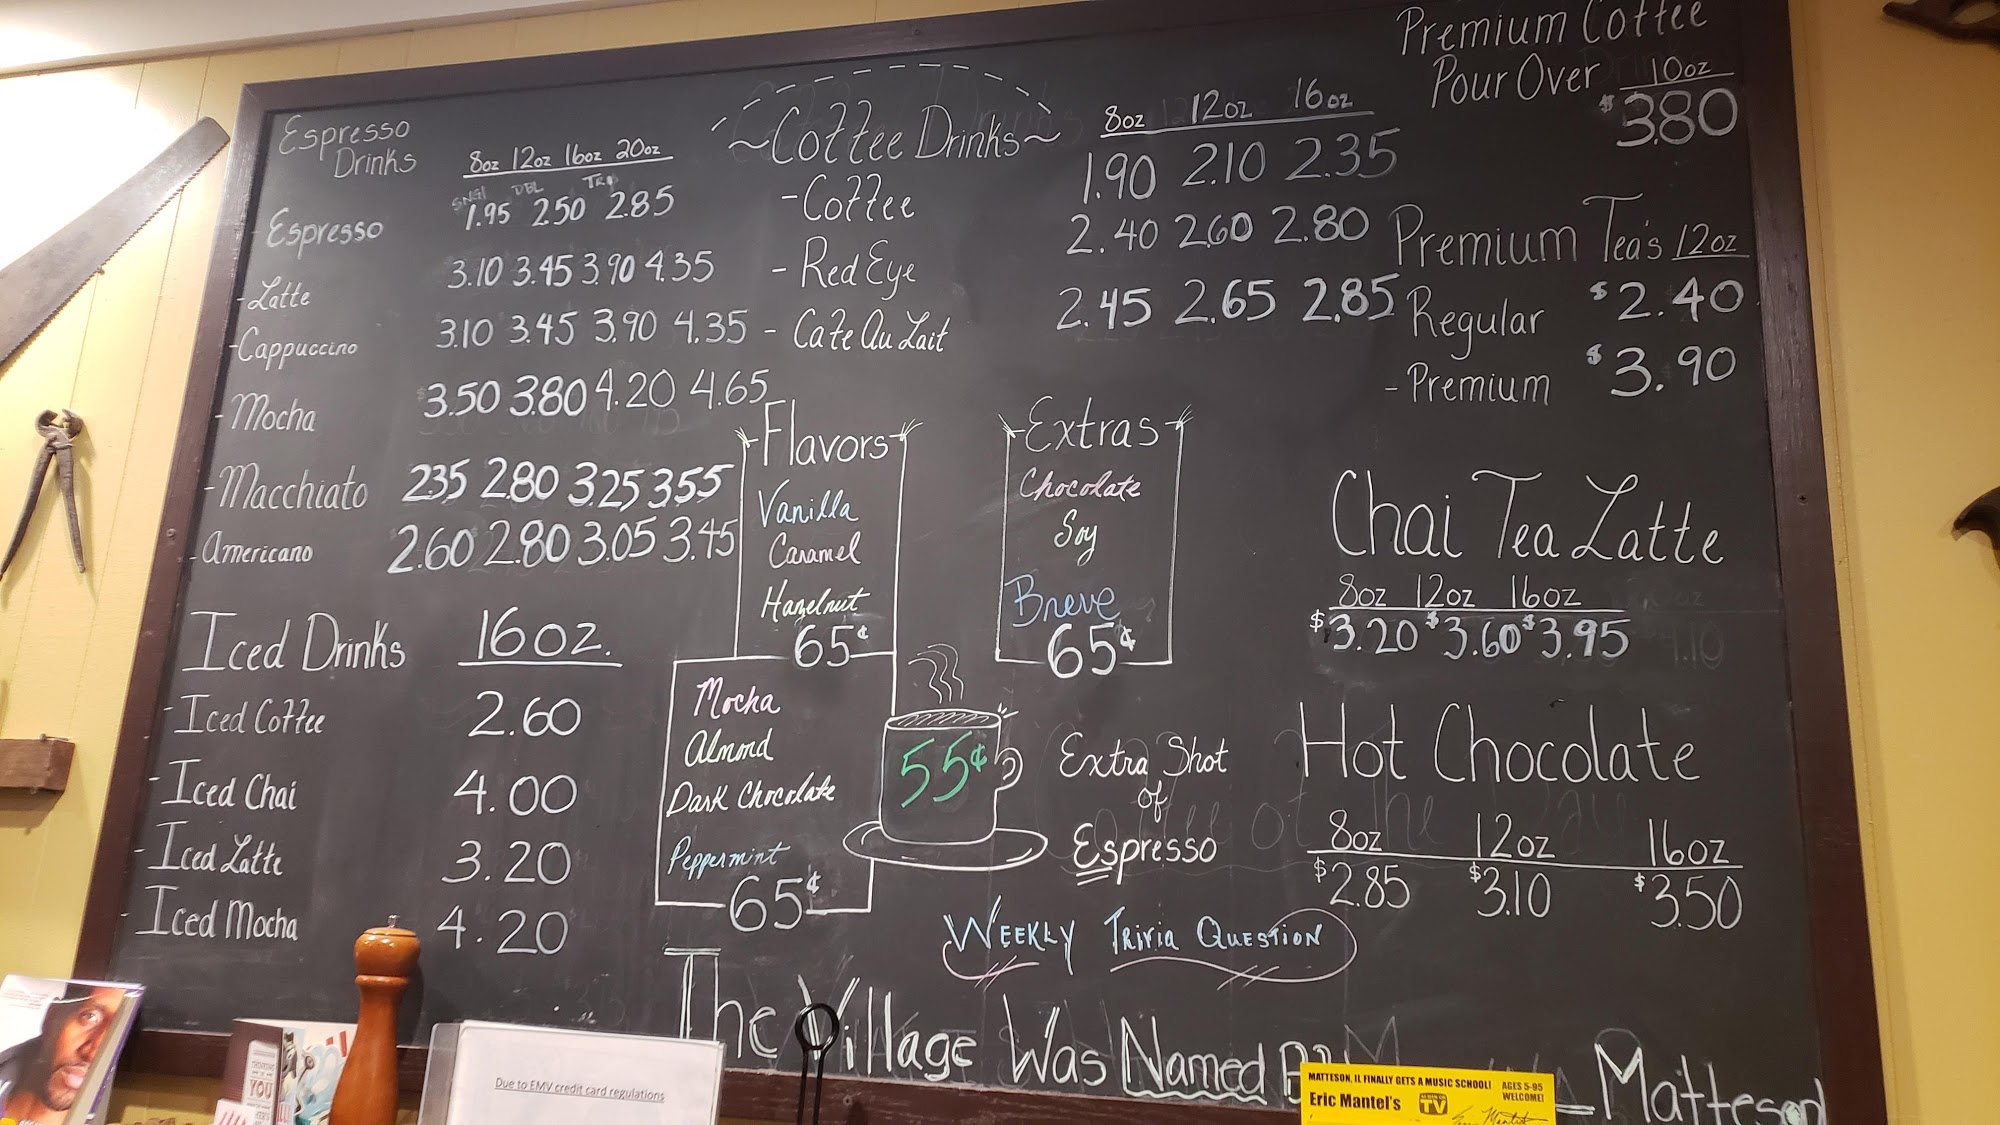 Espresso
Drinks
8oz 12oz 16oz 20oz
SNGL DBL TRP
Espresso 1.95 2.50 2.85
-Latte 3.10 3.45 3.90 4.35
-Cappuccino 3.10 3.45 3.90 4.35
-Mocha 3.50 3.80 4.20 4.65
-Macchiato 2.35 2.80 3.25 3.55
-Americano 2.60 2.80 3.05 3.45
Iced Drinks 16oz.
-Iced Coffee 2.60
-Iced Chai 4.00
-Iced Latte 3.20
-Iced Mocha 4.20
~Coffee Drinks~ 8oz 12oz 16oz
-Coffee 1.90 2.10 2.35
-Red Eye 2.40 2.60 2.80
-Cafe Au Lait 2.45 2.65 2.85
-Flavors-
Vanilla
Caramel
Hazelnut
65¢
Mocha
Almond
Dark Chocolate
Peppermint
65¢
-Extras-
Chocolate
Soy
Breve
65¢
55¢
Extra Shot
of
Espresso
Premium Coffee
Pour Over 10oz
$3.80
Premium Tea's 12oz
Regular $2.40
-Premium $3.90
Chai Tea Latte
8oz 12oz 16oz
$3.20 $3.60 $3.95
Hot Chocolate
8oz 12oz 16oz
$2.85 $3.10 $3.50
Weekly Trivia Question
The Village Was Named
Matteson
Due to EMV credit card regulations
MATTESON, IL FINALLY GETS A MUSIC SCHOOL! AGES 5-95
WELCOME!
Eric Mantel's
TV
YOU